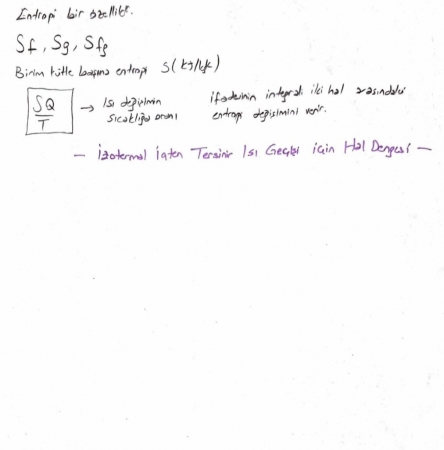 Entropi bir özelliktir.
Sf, Sg, Sfg
Birim kütle başına entropi S(kJ/kgK)
δQ/T → Isı değişimin sıcaklığa oranı
ifadesinin integrali iki hal arasındaki entropi değişimini verir.
— İzotermal İçten Tersinir Isı Geçişi için Hal Dengesi —